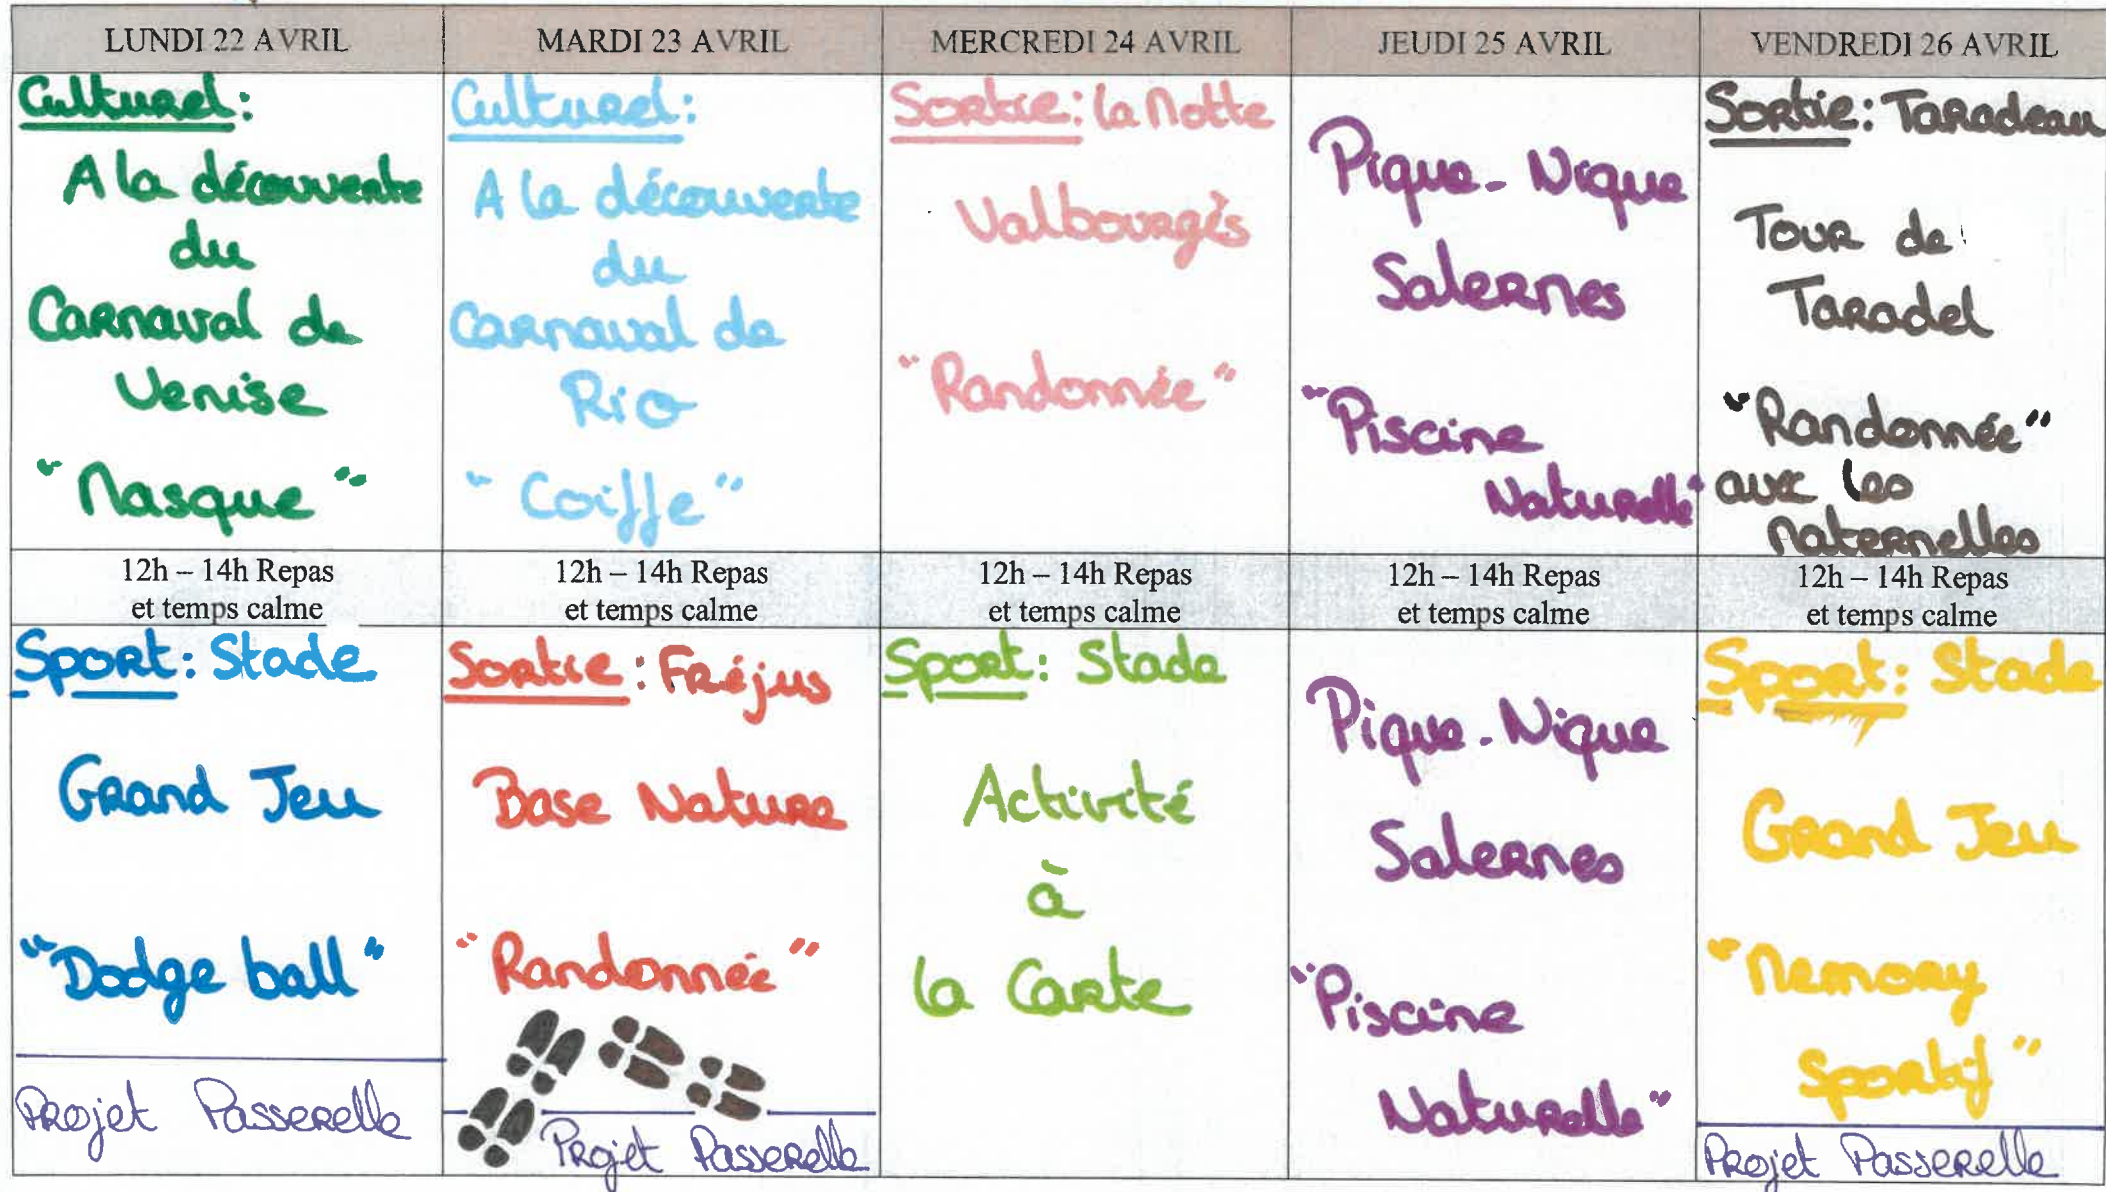 LUNDI 22 AVRIL
MARDI 23 AVRIL
MERCREDI 24 AVRIL
JEUDI 25 AVRIL
VENDREDI 26 AVRIL
Culturel:
A la découverte
du
Carnaval de
Venise
"Masque"
Culturel:
A la découverte
du
Carnaval de
Rio
"Coiffe"
Sortie: la Motte
Valbourgès
"Randonnée"
Pique-Nique
Salernes
"Piscine
Naturelle"
Sortie: Taradeau
Tour de
Taradel
"Randonnée"
avec les
Maternelles
12h – 14h Repas
et temps calme
12h – 14h Repas
et temps calme
12h – 14h Repas
et temps calme
12h – 14h Repas
et temps calme
12h – 14h Repas
et temps calme
Sport: Stade
Grand Jeu
"Dodge ball"
Projet Passerelle
Sortie: Fréjus
Base Nature
"Randonnée"
Projet Passerelle
Sport: Stade
Activité
à
la Carte
Pique-Nique
Salernes
"Piscine
Naturelle"
Sport: Stade
Grand Jeu
"Memory
Sportif"
Projet Passerelle